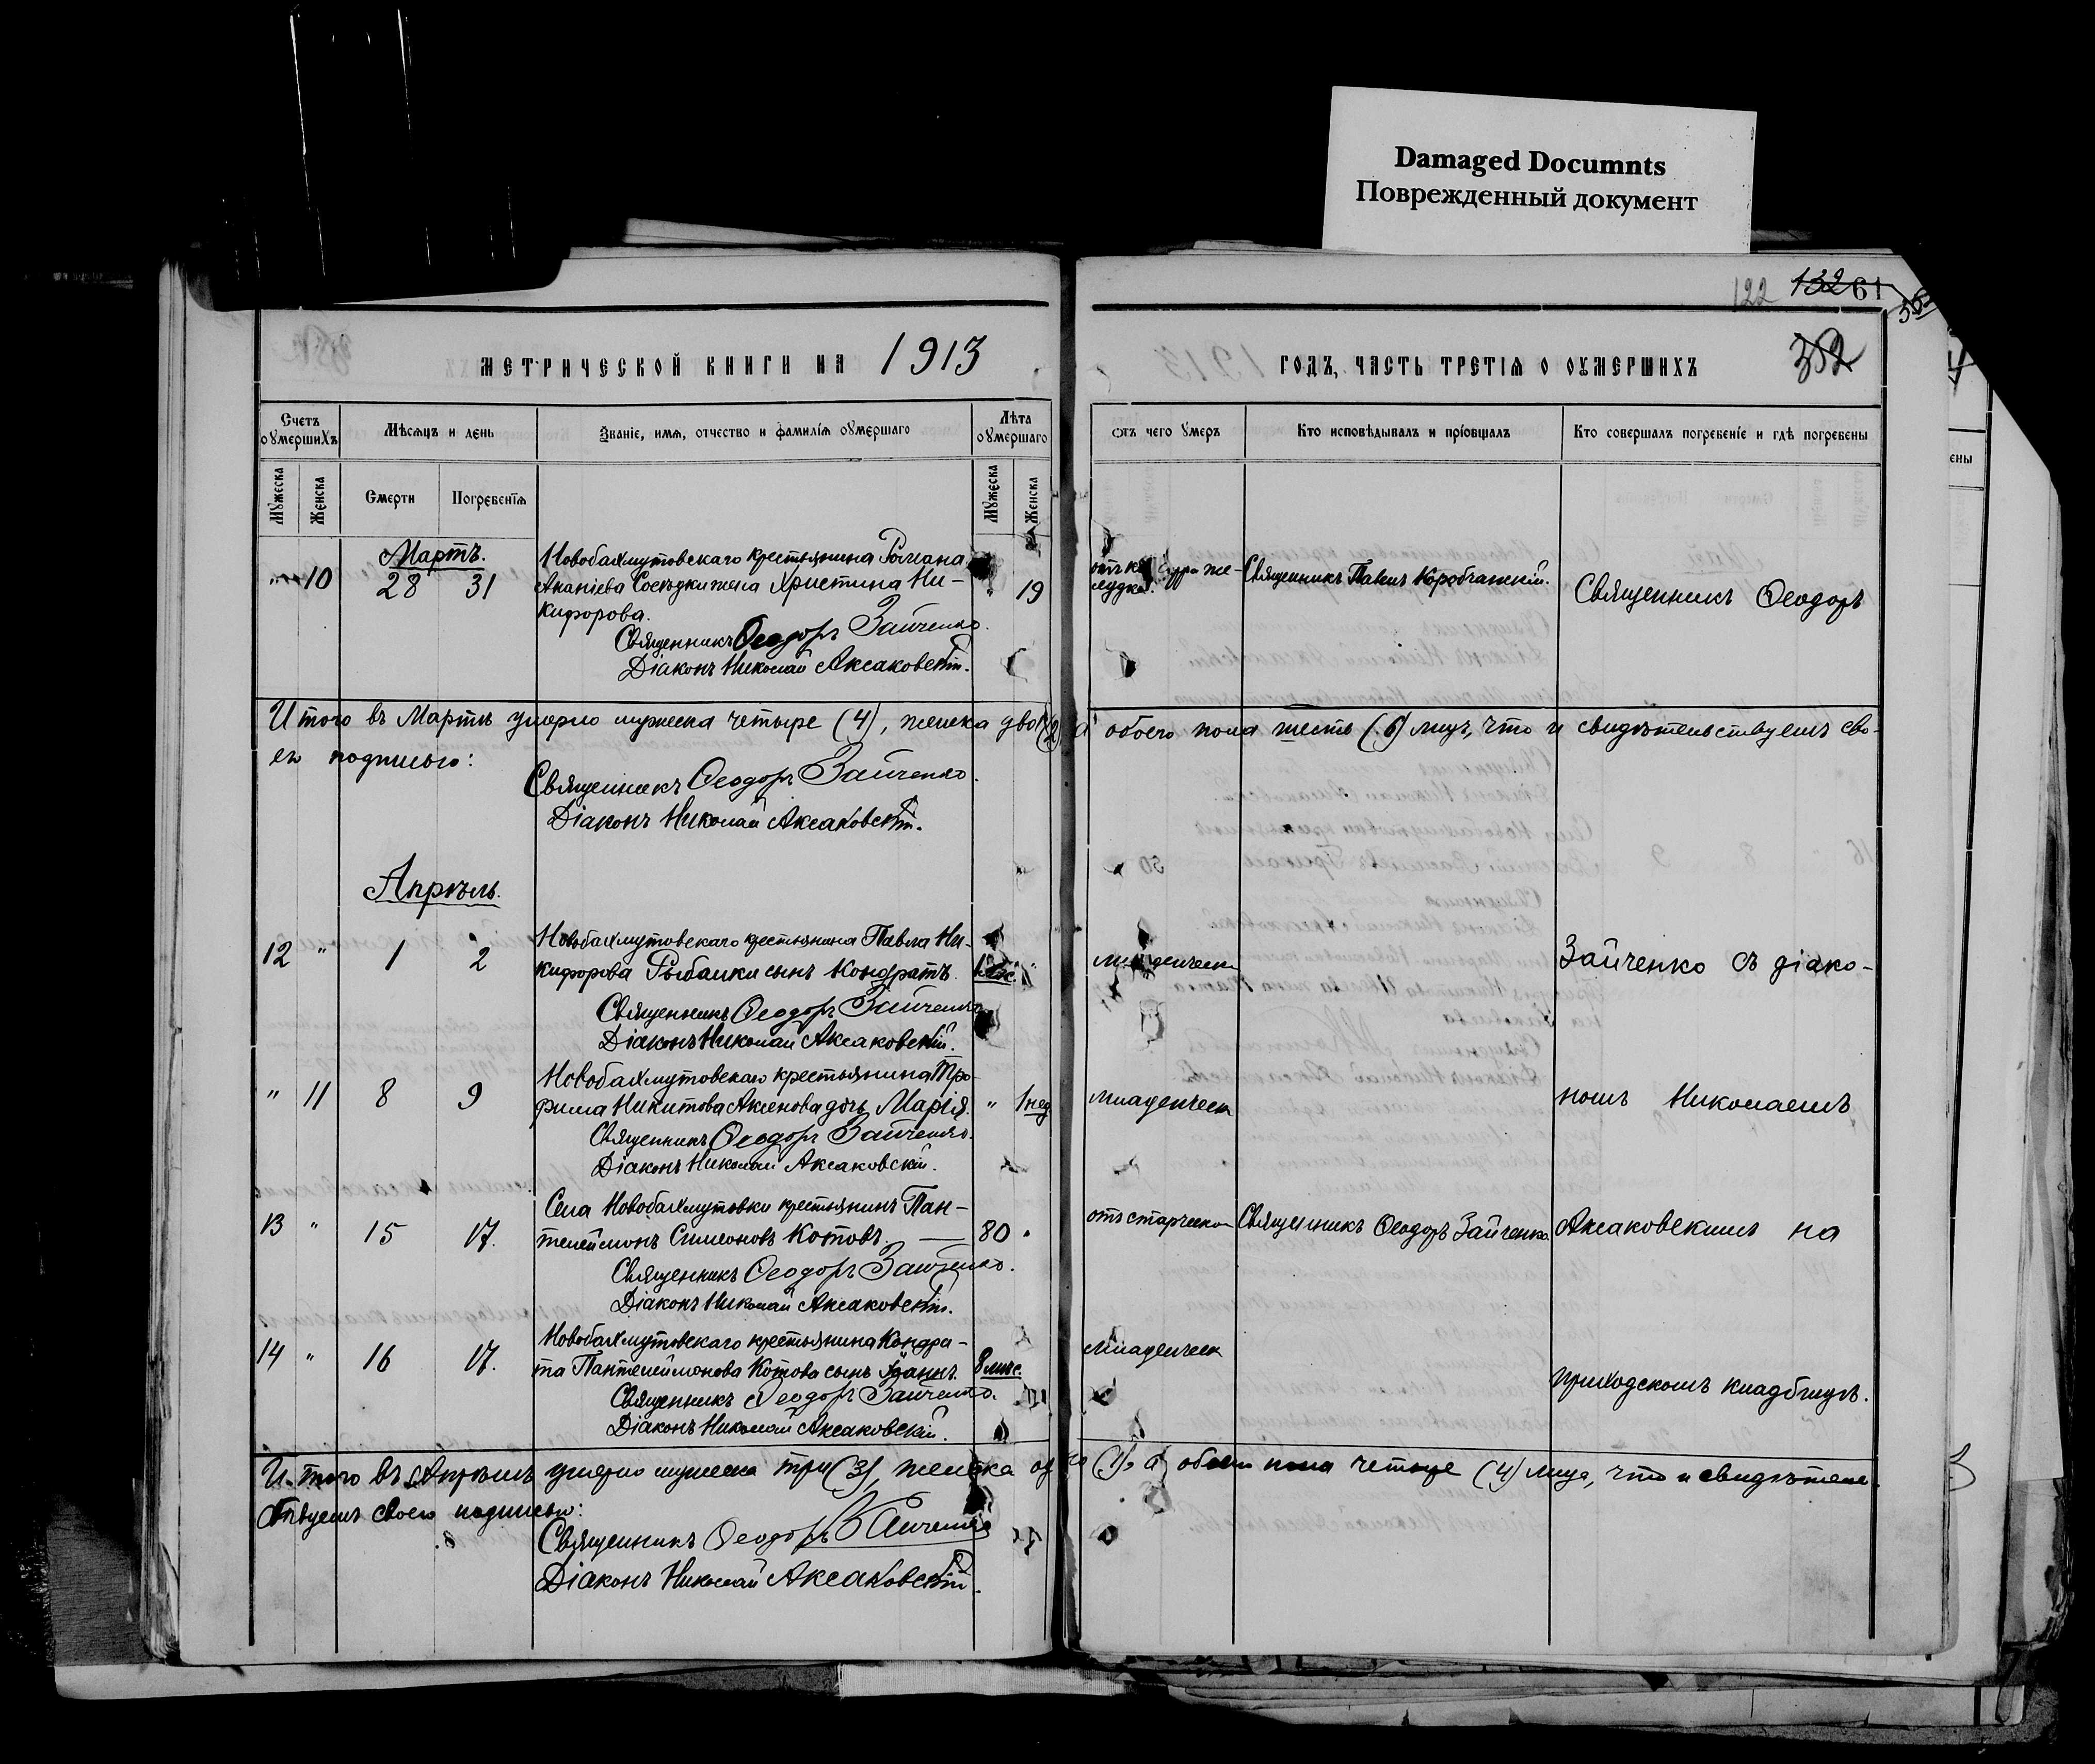 Damaged Documnts
Поврежденный документ
122 132 61
352
МЕТРИЧЕСКОЙ КНИГИ НА 1913
ГОДЪ, ЧАСТЬ ТРЕТІЯ О ОУМЕРШИХЪ
Счетъ оумершихъ
Мѣсяцъ и день
Званіе, имя, отчество и фамилія оумершаго
Лѣта оумершаго
Отъ чего умеръ
Кто исповѣдывалъ и пріобщалъ
Кто совершалъ погребеніе и гдѣ погребены
Мужеска
Женска
Смерти
Погребенія
Мужеска
Женска
Мартъ.
" 10 28 31 Новобахмутовскаго крестьянина Романа
Ананіева Сосѣдки жена Христина Ни-
кифорова. " 19
Священникъ Ѳеодоръ Зайченко.
Діаконъ Николай Аксаковскій.
же-
лудка.
Священникъ Павелъ Коробчанскій.
Священникъ Ѳеодоръ
Итого въ Мартѣ умерло мужеска четыре (4), женска двѣ (2) а обоего пола шесть (6) лицъ, что и свидѣтельствуемъ сво-
ею подписью:
Священникъ Ѳеодоръ Зайченко.
Діаконъ Николай Аксаковскій.
Апрѣль.
12 " 1 2 Новобахмутовскаго крестьянина Павла Ни-
кифорова Рыбалки сынъ Кондратъ.
Священникъ Ѳеодоръ Зайченко
Діаконъ Николай Аксаковскій.
младенческ
Зайченко съ діако-
" 11 8 9 Новобахмутовскаго крестьянина Тро-
фима Никитова Аксенова дочь Марія. " 1 нед
Священникъ Ѳеодоръ Зайченко.
Діаконъ Николай Аксаковскій.
младенческ
номъ Николаемъ
13 " 15 17. Села Новобахмутовки крестьянинъ Пан-
телеймонъ Симеоновъ Котовъ. — 80 "
Священникъ Ѳеодоръ Зайченко.
Діаконъ Николай Аксаковскій.
отъ старческ
Священникъ Ѳеодоръ Зайченко.
Аксаковскимъ на
14 " 16 17. Новобахмутовскаго крестьянина Кондра-
та Пантелеймонова Котова сынъ Іоаннъ. 8 мѣс.
Священникъ Ѳеодоръ Зайченко.
Діаконъ Николай Аксаковскій.
младенческ
приходскомъ кладбищѣ.
Итого въ Апрѣлѣ умерло мужеска три (3), женска одно (1), а обоего пола четыре (4) лица, что и свидѣтель-
ствуемъ своею подписью:
Священникъ Ѳеодоръ Зайченко
Діаконъ Николай Аксаковскій.